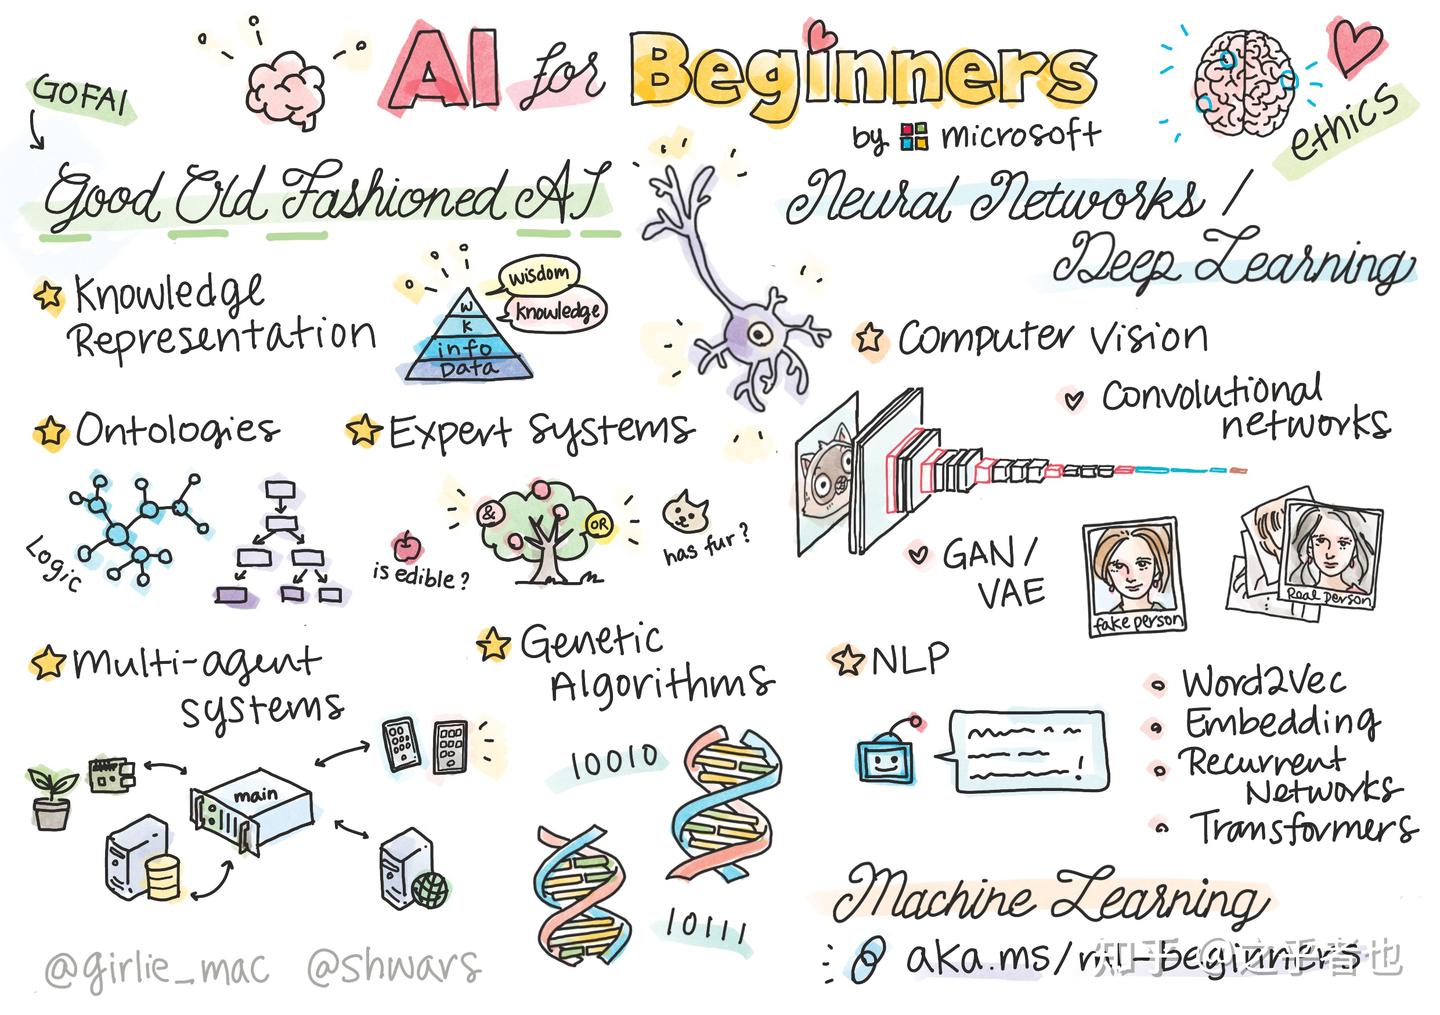 AI for Beginners
by microsoft
GOFAI
Good Old Fashioned AI
Knowledge
Representation
wisdom
knowledge
W
K
info
Data
Ontologies
Logic
Expert Systems
&
OR
is edible?
has fur?
Multi-agent
systems
main
Genetic
Algorithms
10010
10111
@girlie_mac @shwars
ethics
Neural Networks /
Deep Learning
Computer Vision
Convolutional
networks
GAN /
VAE
fake person
Real person
NLP
Word2Vec
Embedding
Recurrent
Networks
Transformers
Machine Learning
aka.ms/ml-beginners
知乎 @之乎者也